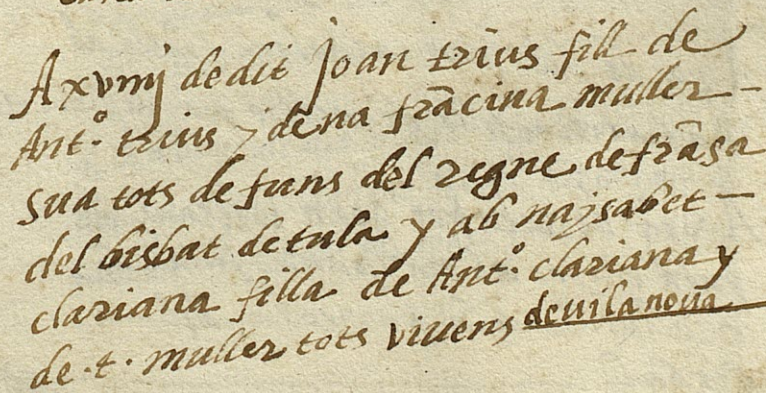 A xviiij dedit Joan trius fill de
Ant.º trius y de na frācina muller
sua tots defuns del regne de frāsa
del bisbat de tula y ab na ysabet
clariana filla de Ant.º clariana y
de .t. muller tots vivens de vilanova